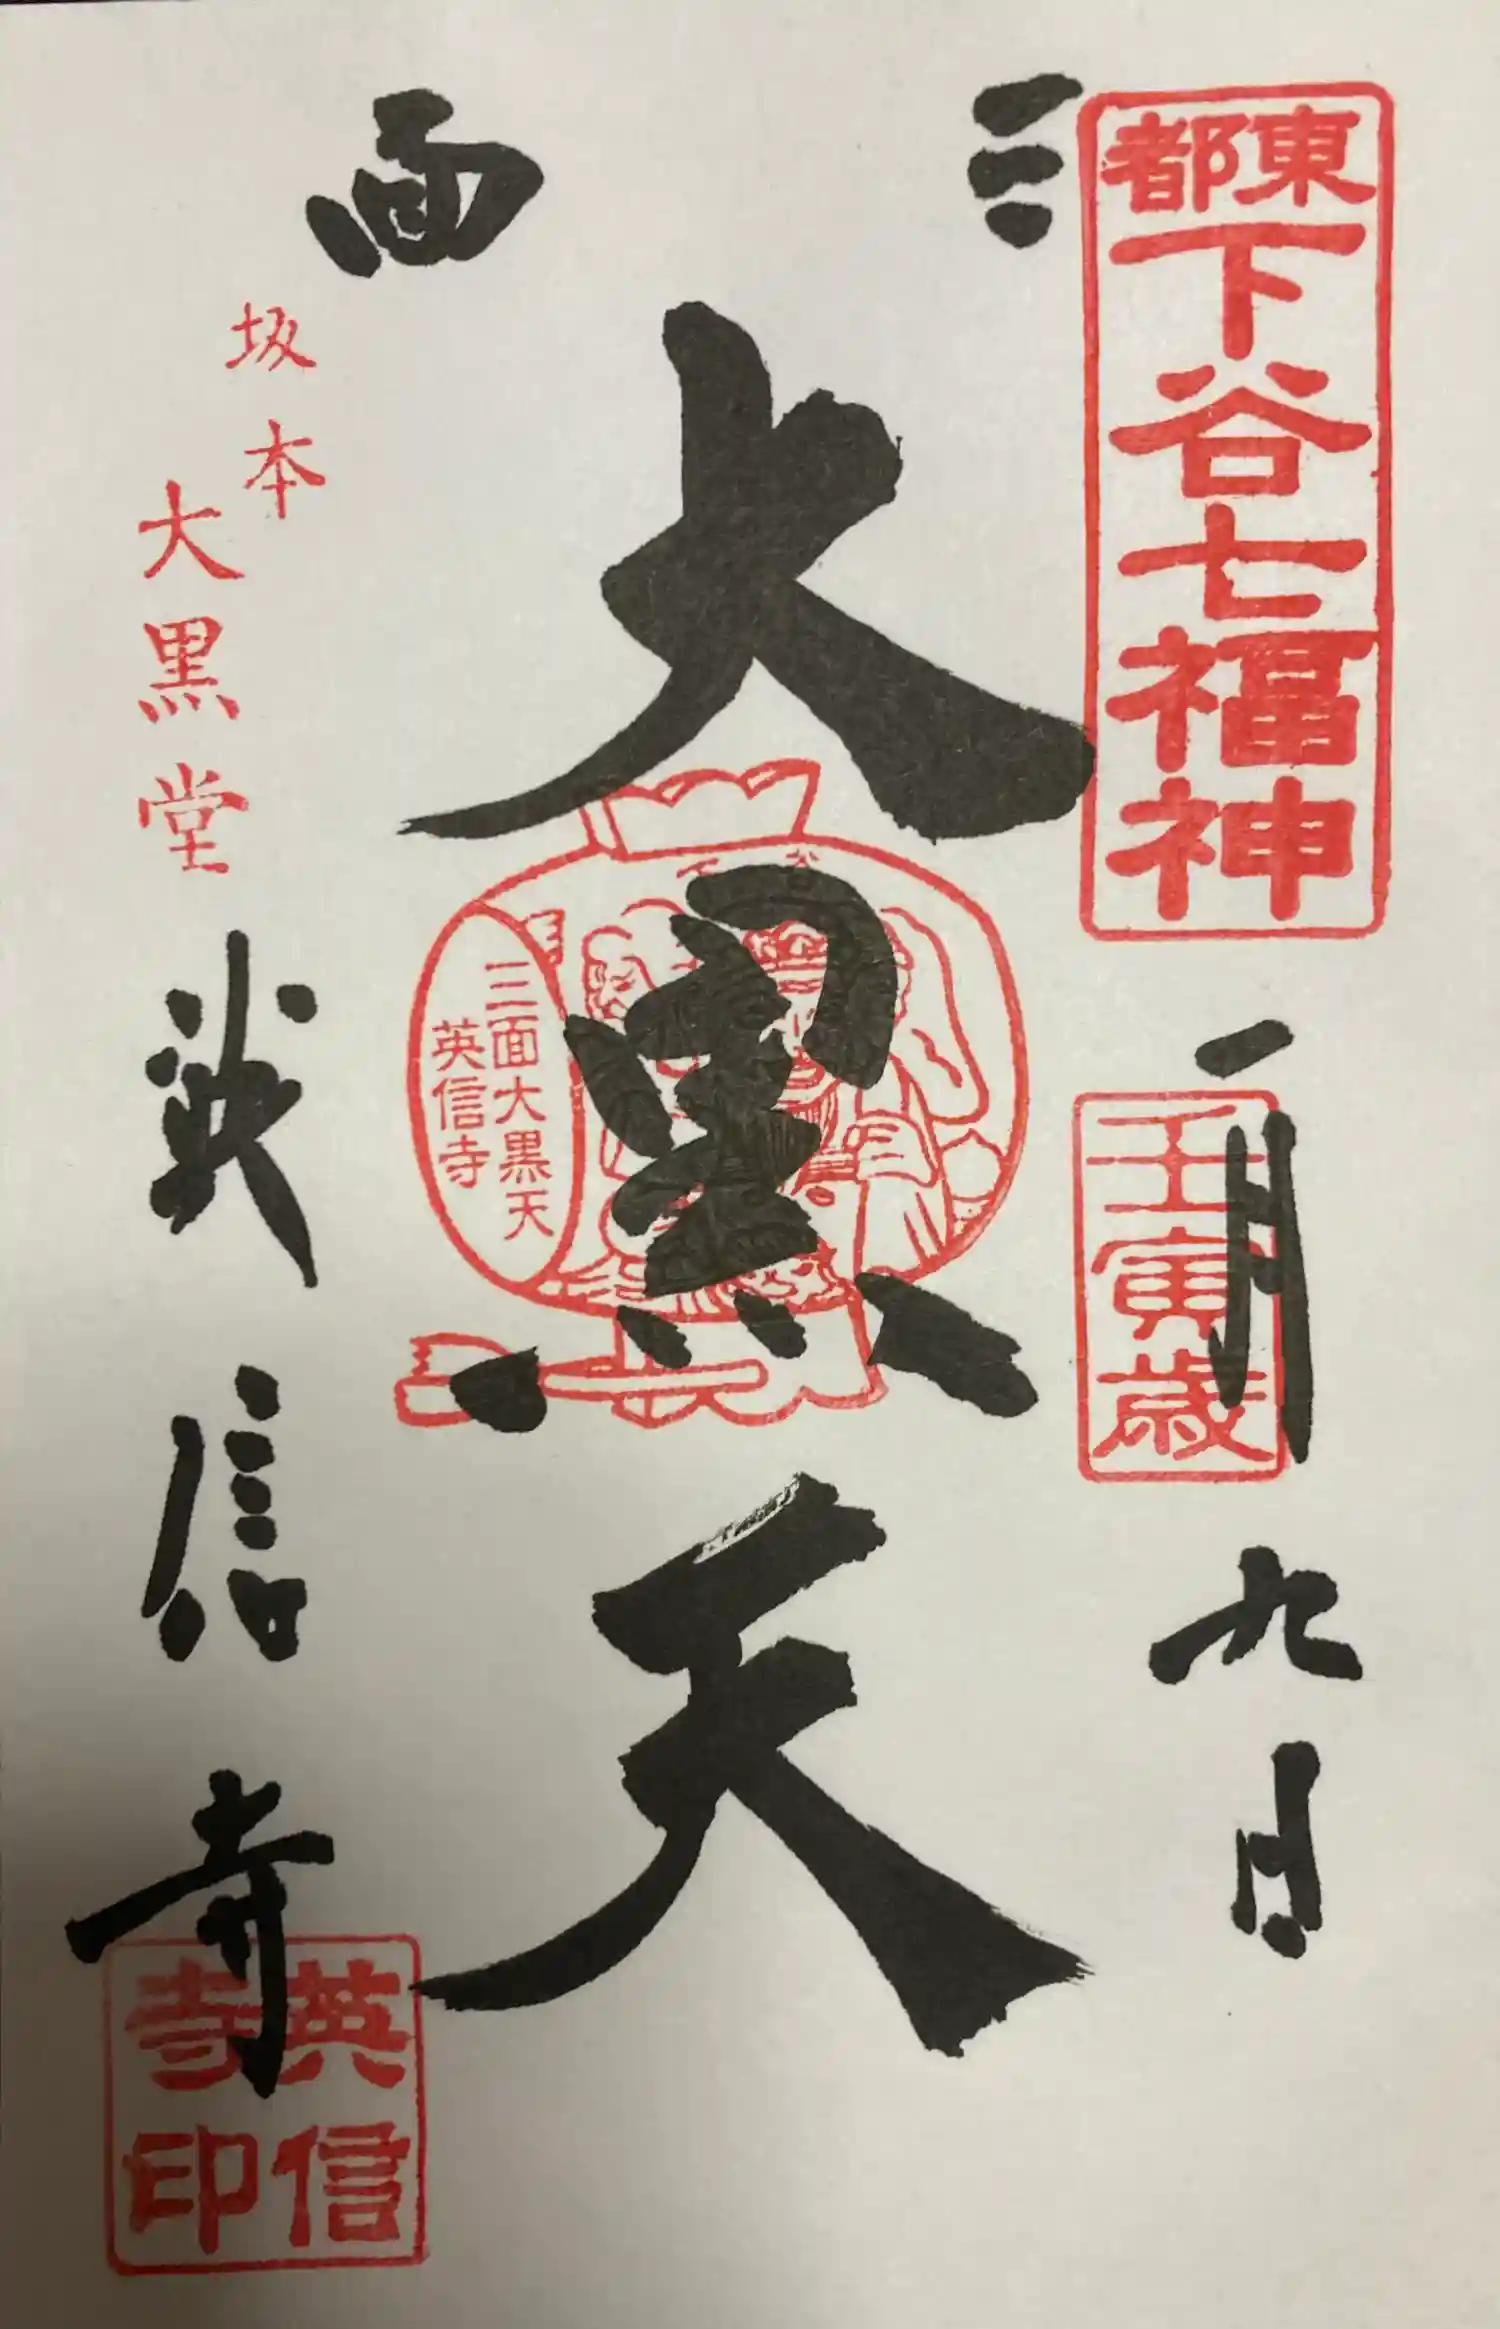 東都
下谷七福神
一月九日
壬寅歳
三面
大黒天
下谷
三面大黒天
英信寺
坂本
大黒堂
英信寺
英信寺印